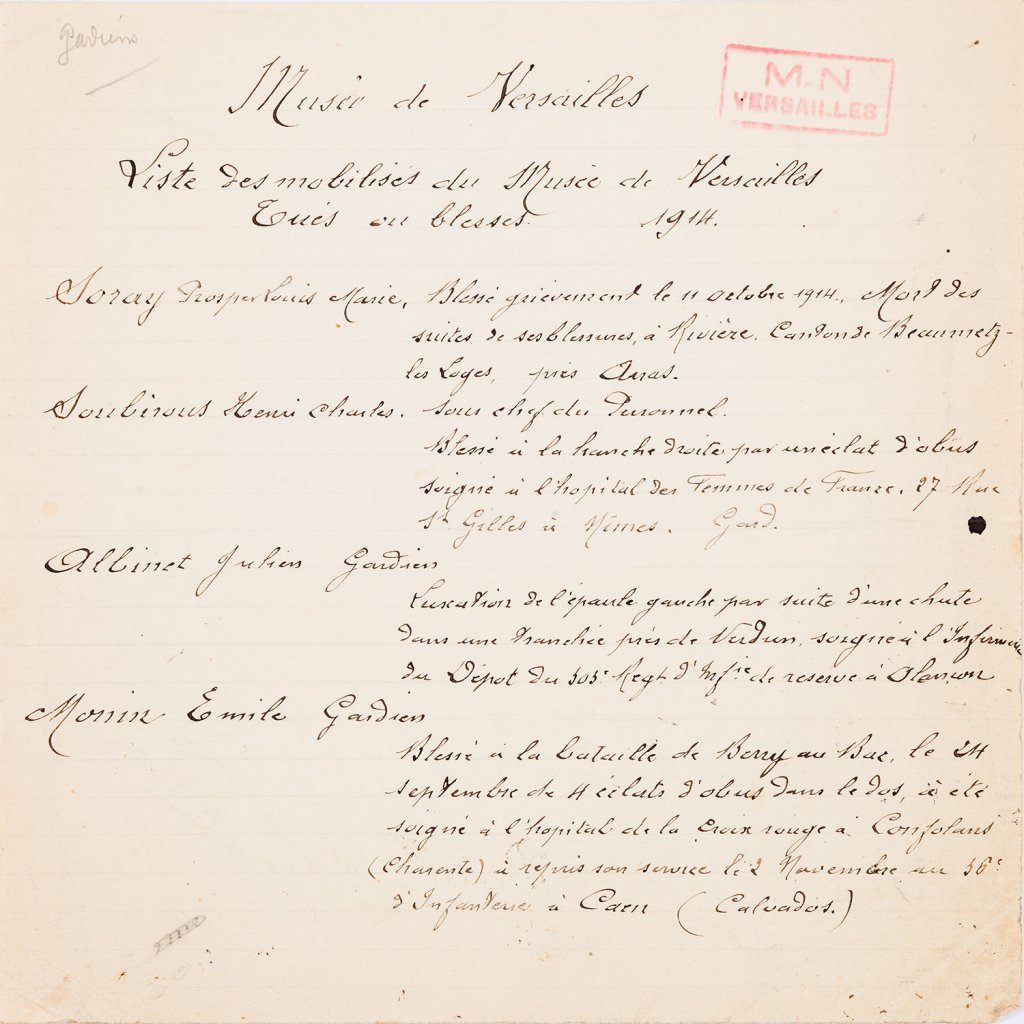 Gardiens
M.N
VERSAILLES
Musée de Versailles
Liste des mobilisés du Musée de Versailles
Tués ou blessés. 1914.
Soray Prosper Louis Marie, Blessé grièvement le 11 octobre 1914., Mort des
suites de ses blessures, à Rivière, Canton de Beaumetz-
les Loges, près Arras.
Soubirous Henri Charles. sous chef du Personnel.
Blessé à la hanche droite par un éclat d'obus
soigné à l'hopital des Femmes de France, 27 Rue
St Gilles à Nîmes. Gard.
Albinet Julien Gardien
Luxation de l'épaule gauche par suite d'une chute
dans une tranchée près de Verdun, soigné à l'Infirmerie
du Dépot du 303e Regt d'Infie de reserve à Alançon
Monin Emile Gardien
Blessé à la bataille de Berry au Bac, le 24
septembre de 4 éclats d'obus dans le dos, à été
soigné à l'hopital de la croix rouge à Confolans
(Charente) à repris son service le 2 Novembre au 36e
d'Infanterie à Caen (Calvados.)